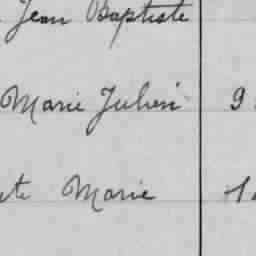 Jean Baptiste
Marie Julien 9
te Marie 1